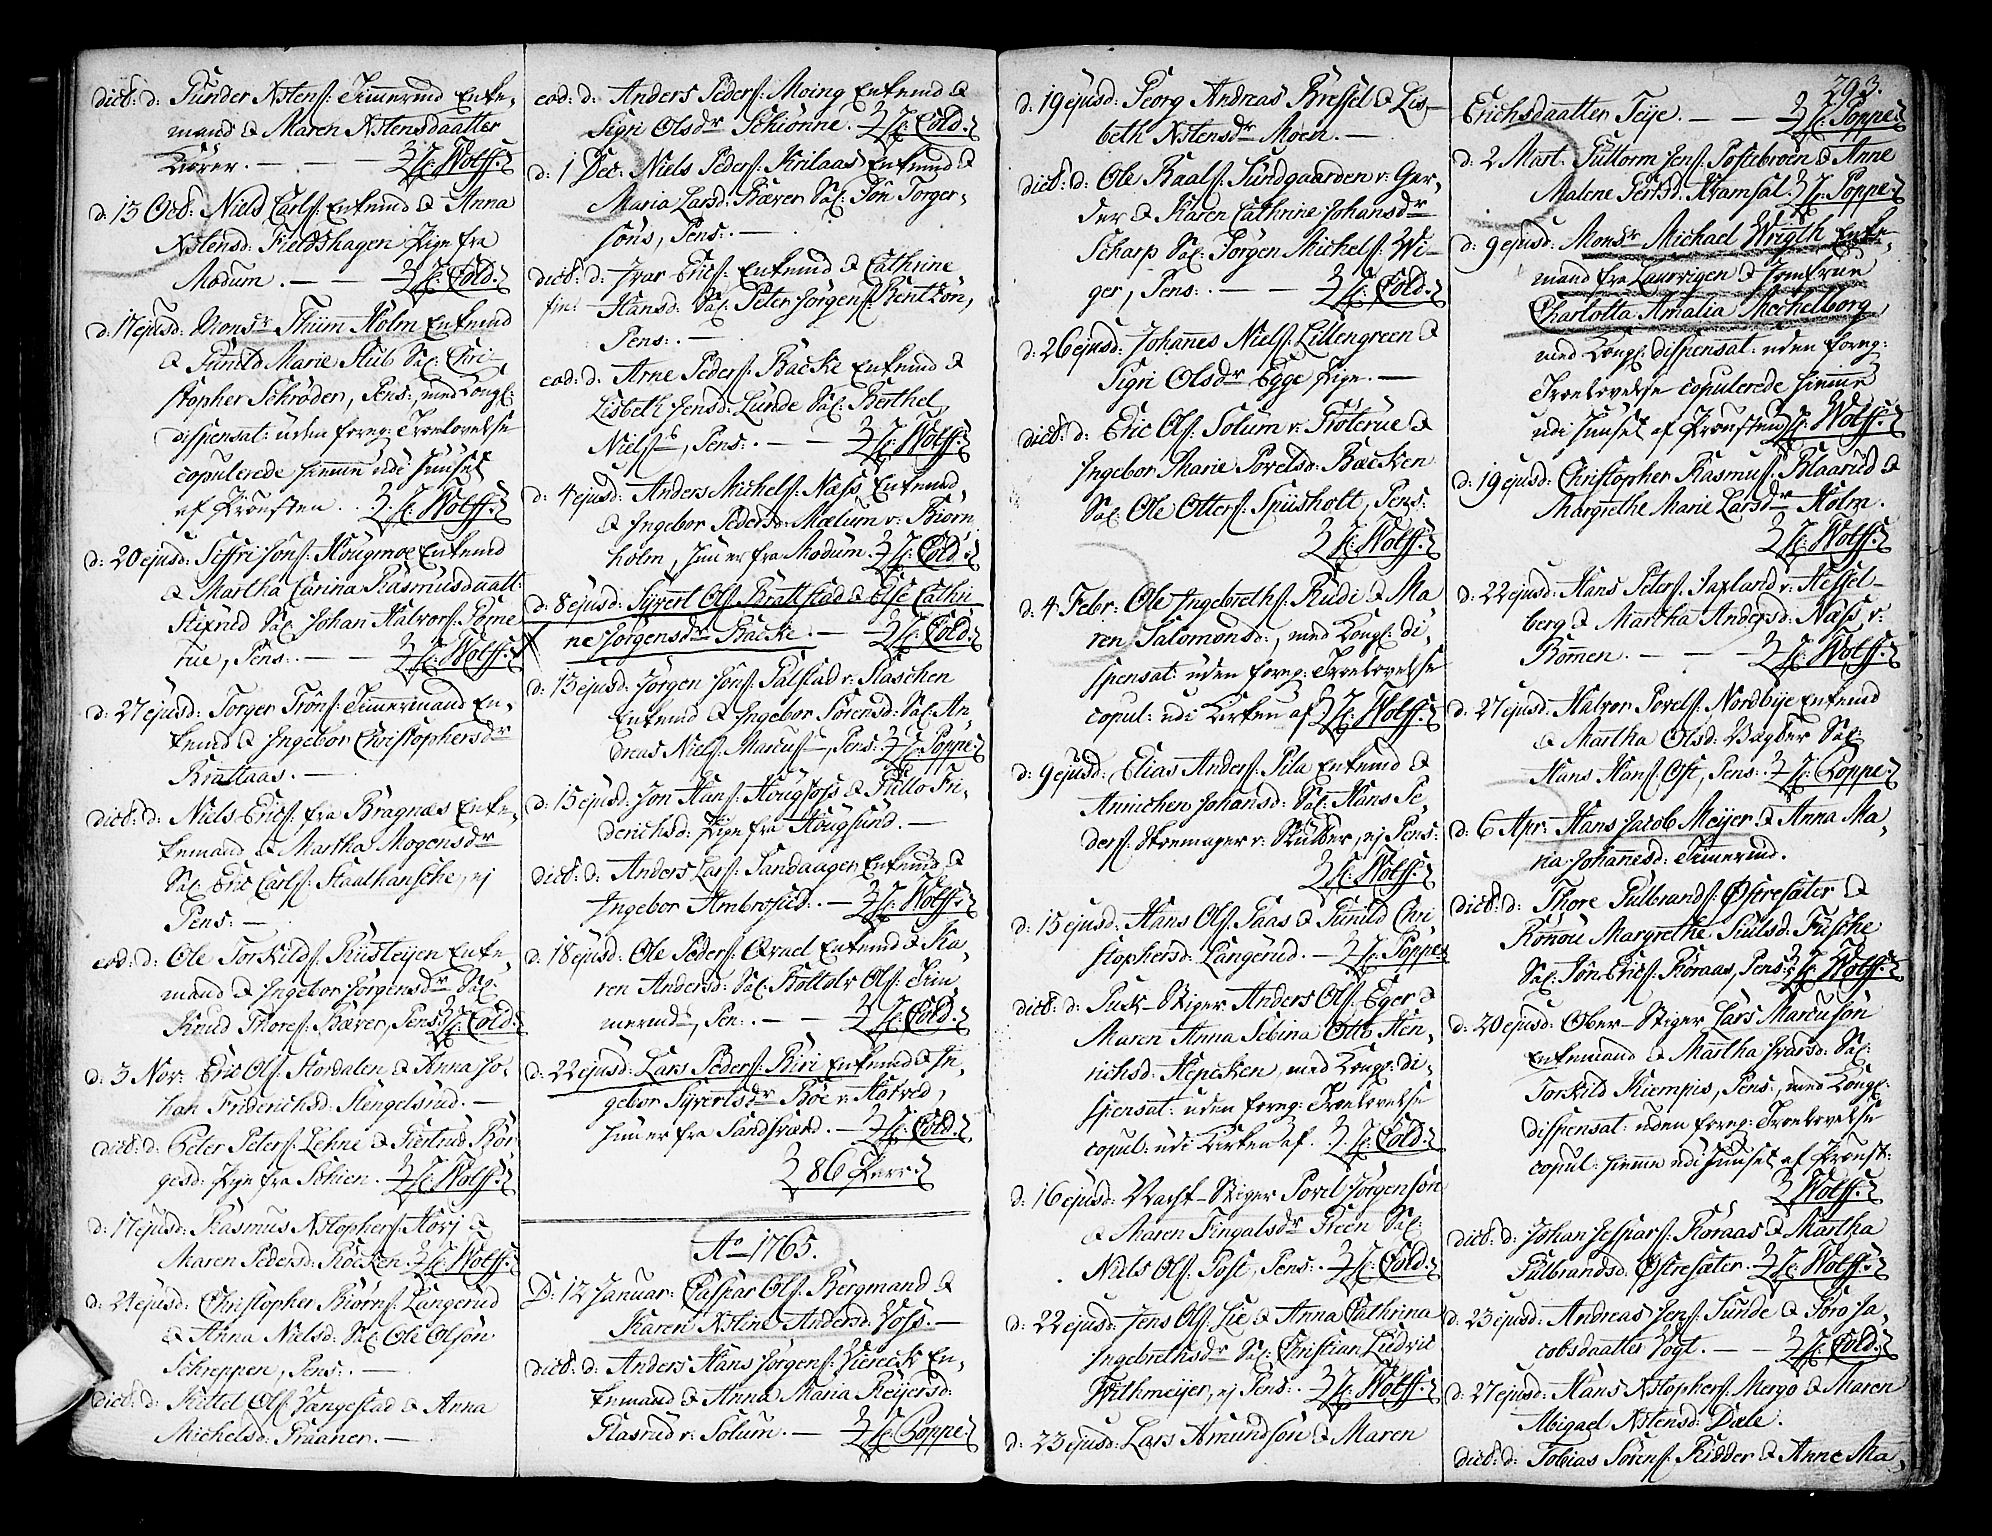 dict: d: Gunder Xstens: Timerud Enke-
mand & Maren Xstensdaatter
Kiörer. — — — H: Wolff.
d: 13 Octb: Niels Carls: Enkemd & Anna
Xstensd: Fieldshagen Pige fra
Modum. — — H: Cold.
d: 17 ejusd: Monsr Thiim Holm Enkemd
& Gunild Marie Stub Sal: Chri-
stopher Schröder, Pens:, med Kongl:
dispensat: uden foreg: Troelovelse
copulerede hiemme udi Huuset
af Prousten. H: Wolff.
d: 20 ejusd: Seffri Jons: Hougmoe Enkemd
& Martha Carina Rasmusdaatt:
Stixrud Sal: Johan Halvors: Pome
rue, Pens:. — — H: Wolff.
d: 27 ejusd: Torger Trons: Timermand En-
kemd & Ingebor Christophersdr
Brattaas. —
dict: d: Niels Erics: fra Bragnæs Enke-
kemand & Martha Mogensdr
Sal: Eric Carls: Staalhansche, ej
Pens: —
eod: d: Ole Torkilds: Rusteijen Enke-
mand & Ingebor Jörgensdr Sal:
Knud Thores: Bæver, Pens: H: Cold.
d: 3 Nov: Eric Ols: Stordalen & Anna Jo-
han Friderichsd: Stengelsrud. —
dict: d: Peter Peters: Lehne & Giertrud Bör
gesd: Pige fra Schien. H: Wolff.
d: 17 ejusd: Rasmus Xstophers: Korj &
Maren Pedersd: Röcken. H: Wolff.
d: 24 ejusd: Christopher Biörns: Langerud
& Anna Nielsd: Sal: Ole Olsön
Schreppen, Pens:. —
dict: d: Kittel Ols: Vangestad & Anna
Michelsd: Graaner. —
eod: d: Anders Peders: Moing Enkemd &
Sigri Olsdr Schiönne. H: Cold.
d: 1 Dec: Niels Peders: Krilaas Enkemd &
Maria Larsd: Bæver Sal: Jön Torger-
söns, Pens:. —
dict: d: Ivar Erics: Enkemd & Cathrine
Hansd: Sal: Peter Jörgens: Bentzön,
Pens:. —
eod: d: Arne Peders: Backe Enkemd &
Lisbeth Jensd: Lunde Sal: Berthel
Niels:s, Pens:. — — H: Wolff.
d: 4 ejusd: Anders Michels: Næss Enkemd,
& Ingebor Pedersd: Mælum v: Biörn
holm, hun er fra Modum. H: Cold.
d: 8 ejusd: Syvert Ols: Brattstad & Else Cathri
ne Jörgensdr Backe. — H: Cold.
d: 13 ejusd: Jörgen Jöns: Palstad v: Flaschen
Enkemd & Ingebor Sörensd: Sal: An-
dreas Niels: Marcus:, Pens: H: Poppe.
d: 15 ejusd: Jon Hans: Hougfoss & Gullo Fri-
derichsd: Pige fra Hougsund. —
dict: d: Anders Lars: Sandaagen Enkemd &
Ingebor Ambrosied. — H: Wolff.
d: 18 ejusd: Ole Peders: Qvæel Enkemd & Ka-
ren Andersd: Sal: Boltolv Ols: Tim-
meruds, Pens:. — — H: Cold.
d: 22 ejusd: Lars Peders: Biri Enkemd & In-
gebor Syvertsdr Böe v: Hotved,
hun er fra Sandsværd. — H: Cold.
86 Parr.
Ao 1765.
D: 12 Januar: Caspar Ols: Bergmand &
Karen Xstine Andersd: Voss. —
dict: d: Anders Hans Jörgens: Viereck En-
kemand & Anna Maria Reijersd:
Flasrud v: Solum. — H: Poppe.
d: 19 ejusd: Georg Andreas Bressel & Lis-
beth Xstensdr Moen. —
dict: d: Ole Paals: Sundgaarden v: Ger-
der & Karen Cathrine Johansdr
Scharp Sal: Jörgen Michels: Wi-
ger, Pens:. — — H: Cold.
d: 26 ejusd: Johanes Niels: Lillengreen &
Sigri Olsdr Egge Pige. —
dict: d: Eric Ols: Solum v: Fröterue &
Ingebor Marie Povelsd: Bæcken
Sal: Ole Otters: Spiisholt, Pens:
H: Wolff.
d: 4 Febr: Ole Ingebreths: Rudi & Ma
ren Salomonsd:, med Kongl: di-
spensat: uden foreg: Troelovelse
copul: udi Kirken af H: Wolff.
d: 9 ejusd: Elias Anders: Pila Enkemd &
Annichen Johansd: Sal: Hans Pe-
ders: Skoemager v: Stubber, ej Pens:
H: Wolff.
d: 15 ejusd: Hans Ols: Faas & Gunild Chri
stophersd: Langerud. — H: Poppe.
dict: d: Puk-Stiger Anders Ols: Eger &
Maren Anna Sebina Otto Hen-
richsd: Hencken, med Kongl: di-
spensat: uden foreg: Troelovelse
copul: udi Kirken af. H: Cold.
d: 16 ejusd: Vasch-Stiger Povel Jörgensön
& Maren Fingalsdr Steen Sal:
Niels Ols: Post, Pens:. H: Cold.
d: 22 ejusd: Jens Ols: Lie & Anna Cathrina
Ingebrethsdr Sal: Christian Ludvic
Withmeijer, ej Pens:. H: Wolff.
d: 23 ejusd: Lars Amundsön & Maren
293.
Erichsdaatter Teije. — — H: Poppe.
d: 2 Mart: Guttorm Jens: Postebröen & Anne
Malene Gertsd: Kramsal. H: Poppe.
d: 9 ejusd: Monsr Michael Wrigth Enke-
mand fra Laurvigen & Jomfrue
Charlotta Amalia Mechelborg,
med Kongl: dispensat: uden foreg:
Troelovelse copulerede hiemme
udi Huuset af Prousten H: Wolff.
d: 19 ejusd: Christopher Rasmus: Blaarud &
Margrethe Marie Larsdr Holm.
H: Wolff.
d: 22 ejusd: Hans Peters: Saxland v: Hessel-
berg & Martha Andersd: Næss v:
Bömen. — — — H: Wolff.
d: 27 ejusd: Halvor Povels: Nordbije Enkemd
& Martha Olsd: Bagber Sal:
Hans Hans: Ost, Pens:. H: Poppe.
d: 6 Apr: Hans Jacob Meijer & Anna Ma-
ria Johanesd: Timerud.
dict: d: Thore Gulbrands: Östresæter &
Rönou Margrethe Siulsd: Fusche
Sal: Jön Erics: Röraas, Pens: H: Wolff.
d: 20 ejusd: Ober-Stiger Lars Marcusön
Enkemand & Martha Ivarsd: Sal:
Torkild Kiempis, Pens:, med Kongl:
dispensat: uden foreg: Troelovelse
copul: hiemme udi Huuset af Proust:
Wolff.
dict: d: Johan Jespars: Röraas & Martha
Gulbrandsd: Östresæter. H: Wolff.
d: 23 ejusd: Andreas Jens: Sunde & Goro Ja-
cobsdaatter Vogt. — — H: Cold.
d: 27 ejusd: Hans Xstophers: Mergo & Maren
Abigael Xstensd: Dæle.
dict: d: Tobias Sörens: Ridder & Anne Ma-